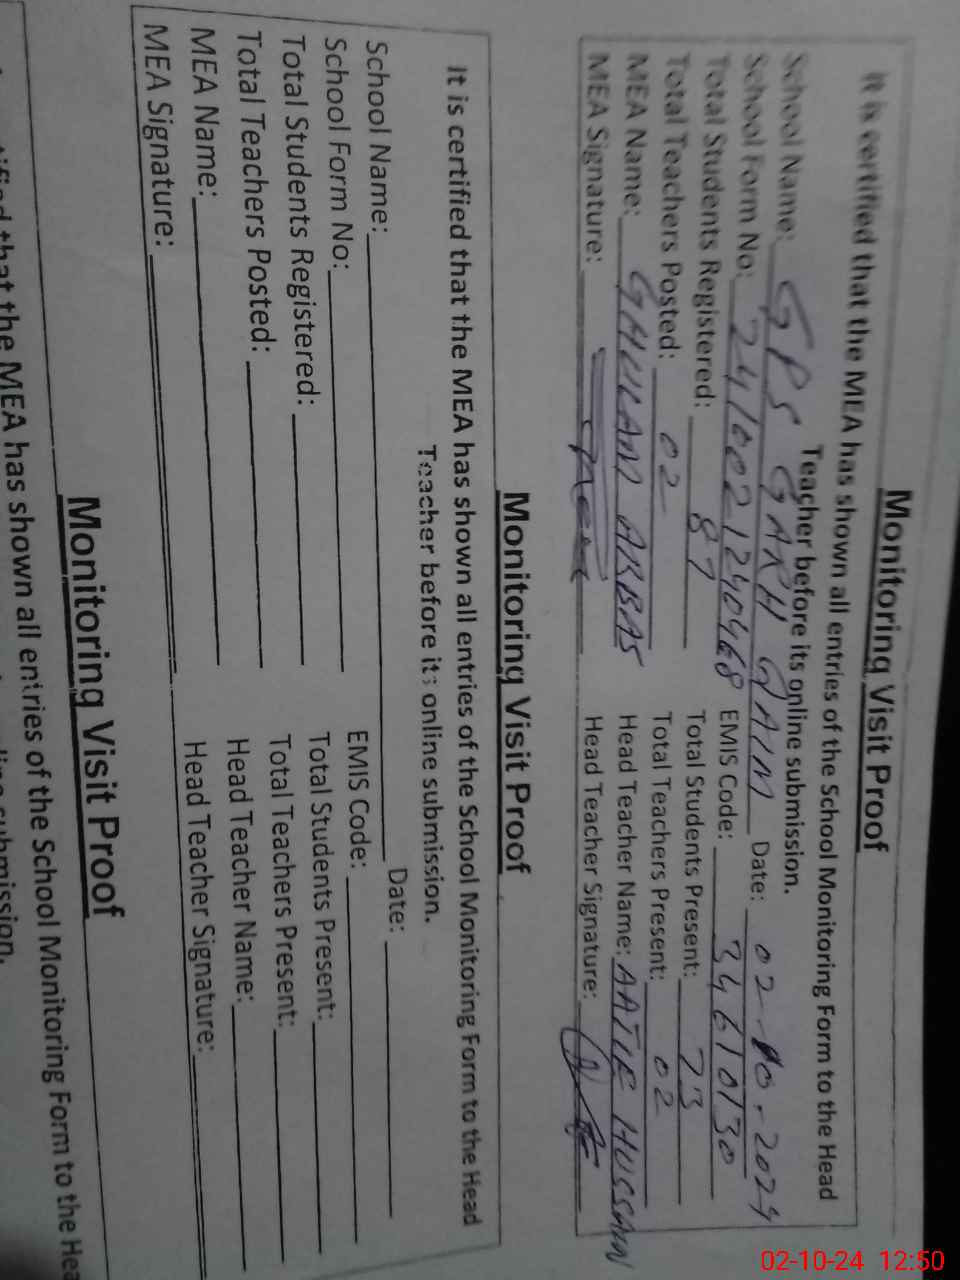 Monitoring Visit Proof
It is certified that the MEA has shown all entries of the School Monitoring Form to the Head
Teacher before its online submission.
School Name: GPS GARH QAIM Date: 02-10-2024
School Form No: 2410021240468 EMIS Code: 34610130
Total Students Registered: 87 Total Students Present: 73
Total Teachers Posted: 02 Total Teachers Present: 02
MEA Name: GHULAM ABBAS Head Teacher Name: AATIF HUSSAIN
MEA Signature: Head Teacher Signature:
Monitoring Visit Proof
It is certified that the MEA has shown all entries of the School Monitoring Form to the Head
Teacher before its online submission.
School Name: Date:
School Form No: EMIS Code:
Total Students Registered: Total Students Present:
Total Teachers Posted: Total Teachers Present:
MEA Name: Head Teacher Name:
MEA Signature: Head Teacher Signature:
Monitoring Visit Proof
that the MEA has shown all entries of the School Monitoring Form to the
submission.
02-10-24 12:50